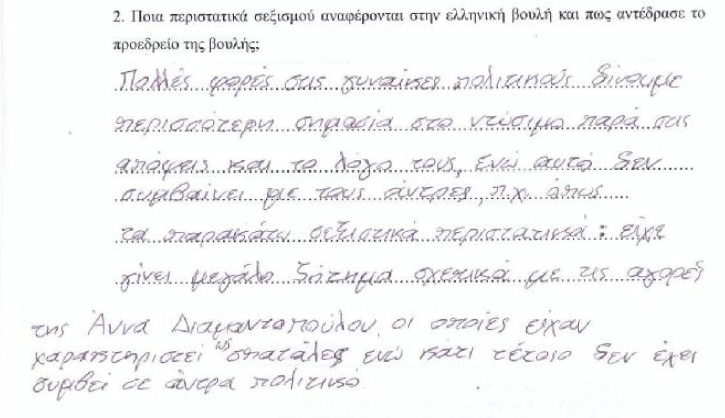 2. Ποια περιστατικά σεξισμού αναφέρονται στην ελληνική βουλή και πως αντέδρασε το
προεδρείο της βουλής;
Πολλές φορές στις γυναίκες πολιτικούς δίνουμε
περισσότερη σημασία στο ντύσιμο παρά στις
απόψεις και το λόγο τους, ενώ αυτό δεν
συμβαίνει με τους άντρες, π.χ. όπως
τα παρακάτω σεξιστικά περιστατικά: είχε
γίνει μεγάλο ζήτημα σχετικά με τις αγορές
της Άννα Διαμαντοπούλου, οι οποίες είχαν
χαρακτηριστεί ως σπατάλες ενώ κάτι τέτοιο δεν έχει
συμβεί σε άντρα πολιτικό.